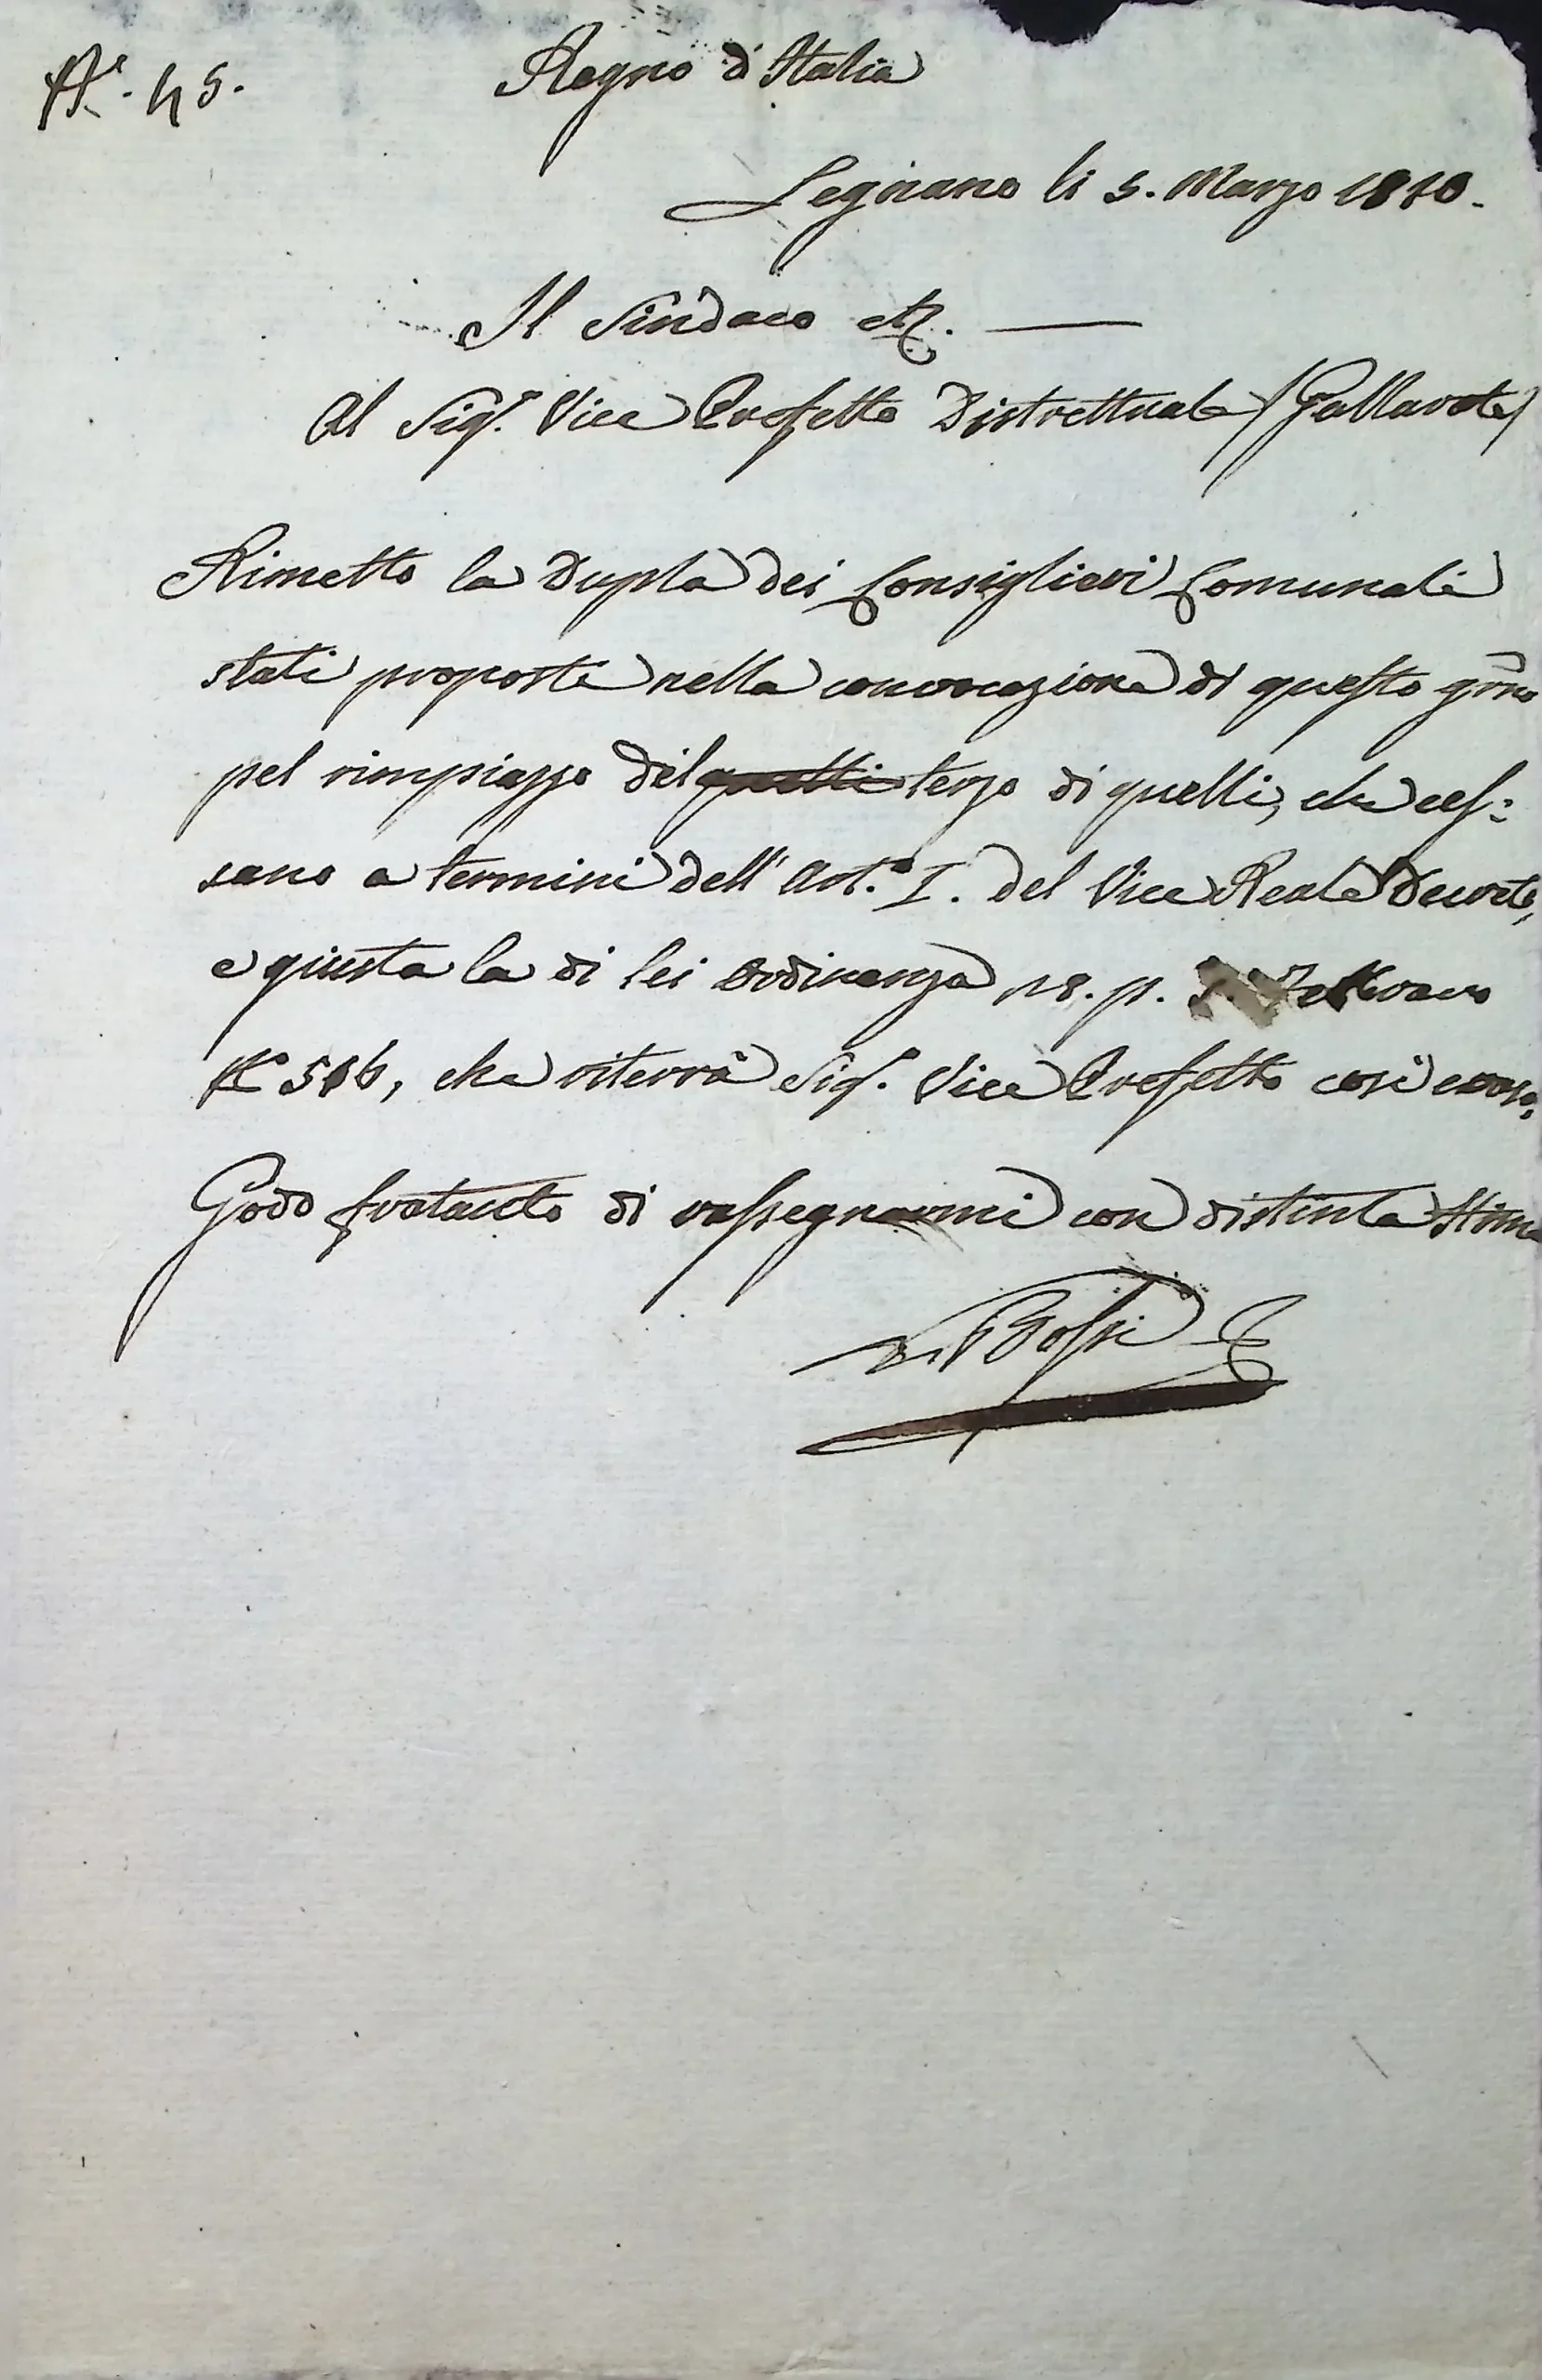 N.° 45.
Regno d'Italia
Legnano li 5. Marzo 1810.
Il Sindaco
Al Sig.r Vice Prefetto Distrettuale /Gallarate/
Rimetto la Dupla dei Consiglieri Comunali
stati proposti nella convocazione di questo gṙno
pel rimpiazzo del quelli terzo di quelli, che ces=
sano a termini dell' Art.° I. del Vice Reale Decreto,
e giusta la di lei Ordinanza p. p. Febbraro
N.° 516, che riterrà Sig.r Vice Prefetto così evaso,
Godo frattanto di rassegnarmi con distinta stima
Bossi